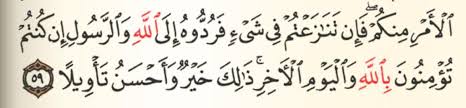 ٱلۡأَمۡرِ مِنكُمۡۖ فَإِن تَنَٰزَعۡتُمۡ فِي شَيۡءٖ فَرُدُّوهُ إِلَى ٱللَّهِ وَٱلرَّسُولِ إِن كُنتُمۡ
تُؤۡمِنُونَ بِٱللَّهِ وَٱلۡيَوۡمِ ٱلۡأٓخِرِۚ ذَٰلِكَ خَيۡرٞ وَأَحۡسَنُ تَأۡوِيلًا ٥٩